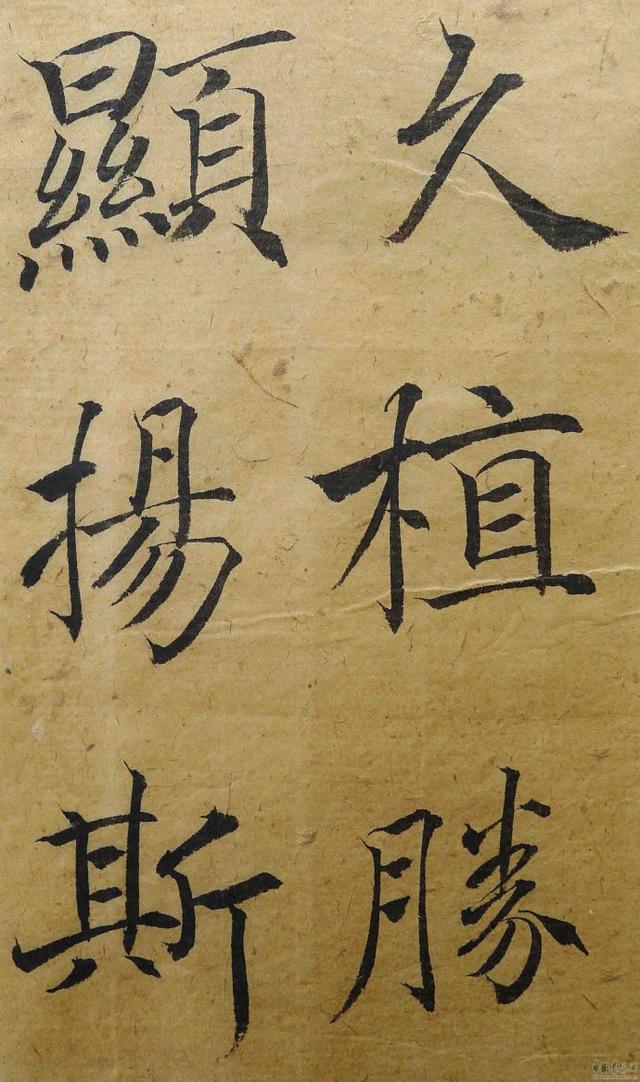 久植勝
顯揚斯